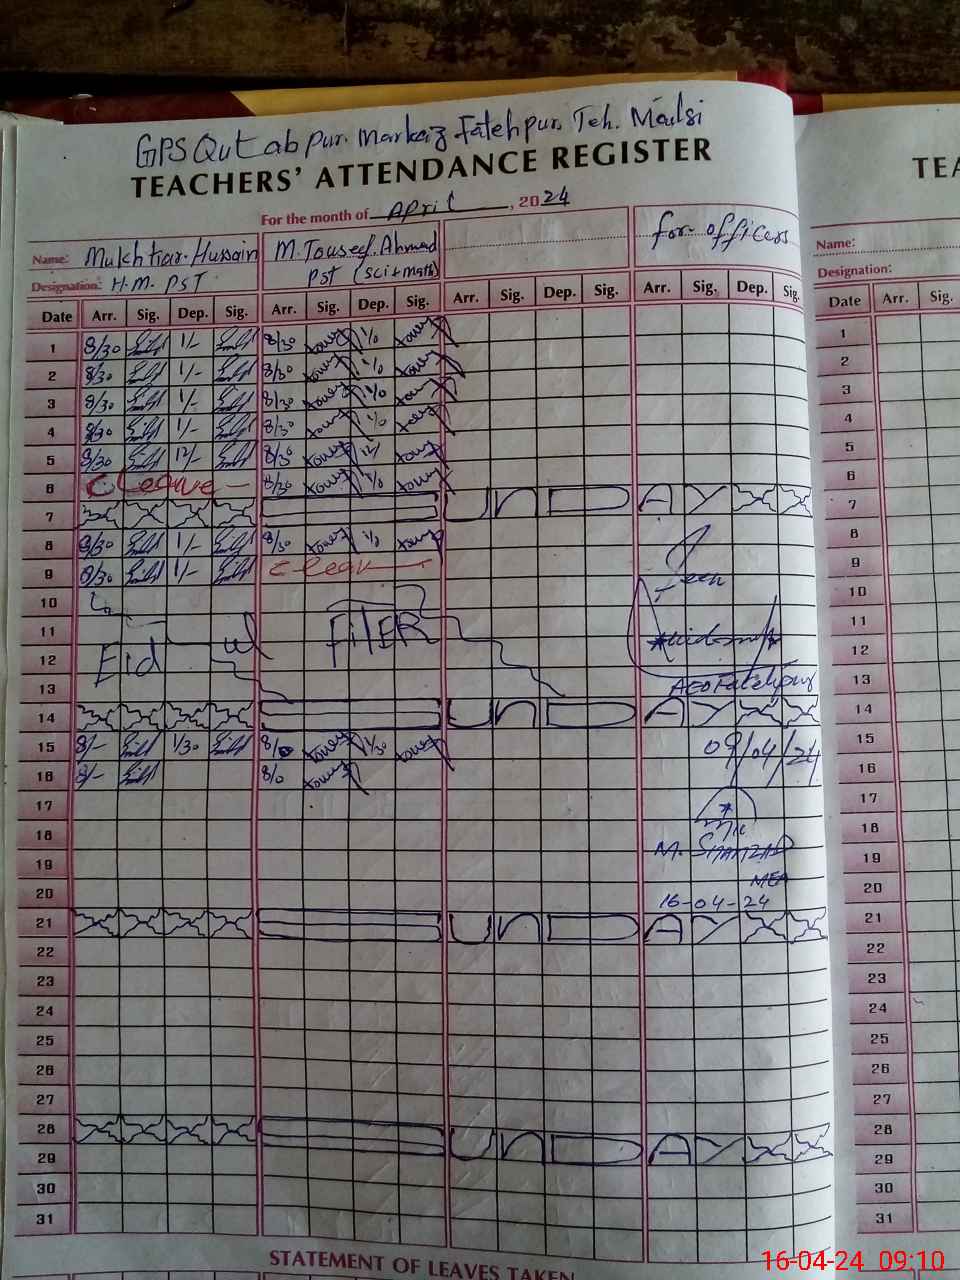 GPS Qutab pur. Markaz Fatehpur. Teh. Mailsi
TEACHERS' ATTENDANCE REGISTER
For the month of April, 2024
Name: Mukhtiar Hussain M. Touseef Ahmad for officers
Designation: H.M. PST PST (sci+math)
Date Arr. Sig. Dep. Sig. Arr. Sig. Dep. Sig. Arr. Sig. Dep. Sig. Arr. Sig. Dep. Sig.
1 8/30 1/- 8/30 1/0
2 8/30 1/- 8/30 1/0
3 8/30 1/- 8/30 1/0
4 8/30 1/- 8/30 1/0
5 8/30 12/- 8/30 12/
6 C Leave 8/30 1/0
7 SUNDAY
8 8/30 1/- 8/30 1/0
9 8/30 1/-
10 Seen
11
12 Eid ul FITER
13 AEO Fatehpur
14 SUNDAY
15 8/- 1/30 8/0 1/30 09/04/24
16 8/- 8/0
17
18
19 M. SHAHZAD
20 MEA
16-04-24
21 SUNDAY
22
23
24
25
26
27
28 SUNDAY
29
30
31
STATEMENT OF LEAVES TAKEN
TEA
Name:
Designation:
Date Arr. Sig.
1
2
3
4
5
6
7
8
9
10
11
12
13
14
15
16
17
18
19
20
21
22
23
24
25
26
27
28
29
30
31
16-04-24 09:10